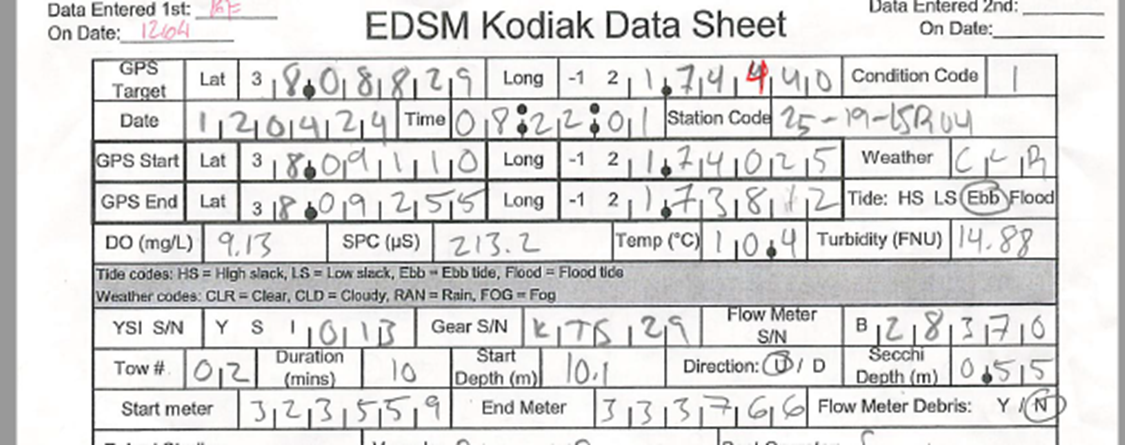 Data Entered 1st: Data Entered 2nd:
On Date: 1204 EDSM Kodiak Data Sheet On Date:
GPS Target Lat 38.08829 Long -121.74440 Condition Code 1
Date 120424 Time 08:22:01 Station Code 25-19-LSR04
GPS Start Lat 38.091110 Long -121.74025 Weather CLR
GPS End Lat 38.09255 Long -121.73812 Tide: HS LS Ebb Flood
DO (mg/L) 9.13 SPC (µS) 213.2 Temp (°C) 10.4 Turbidity (FNU) 14.88
Tide codes: HS = High slack, LS = Low slack, Ebb = Ebb tide, Flood = Flood tide
Weather codes: CLR = Clear, CLD = Cloudy, RAN = Rain, FOG = Fog
YSI S/N YSI 1013 Gear S/N KTS 29 Flow Meter S/N B 28370
Tow # 02 Duration (mins) 10 Start Depth (m) 10.1 Direction: U / D Secchi Depth (m) 0.55
Start meter 323559 End Meter 333766 Flow Meter Debris: Y / N